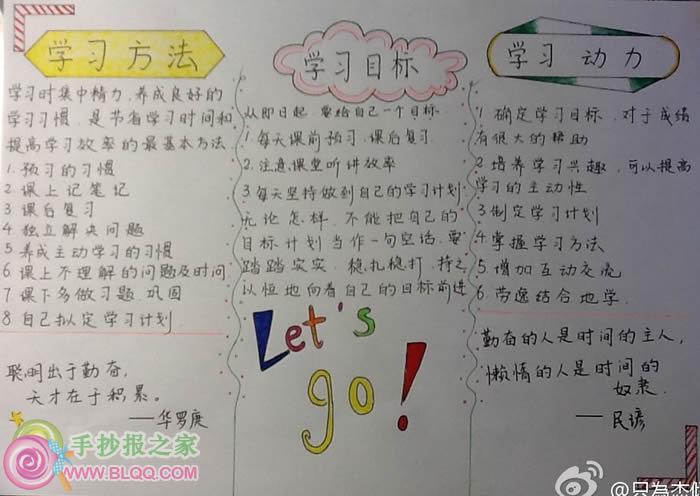 学习方法
学习时集中精力,养成良好的
学习习惯,是节省学习时间和
提高学习效率的最基本方法
1.预习的习惯
2.课上记笔记
3 课后复习
4.独立解决问题
5.养成主动学习的习惯
6 课上不理解的问题及时问
7 课下多做习题.巩固
8 自己拟定学习计划
聪明出于勤奋,
天才在于积累。
——华罗庚
学习目标
从即日起,要给自己一个目标
1.每天课前预习.课后复习
2.注意课堂听讲效率
3 每天坚持做到自己的学习计划
无论怎样,不能把自己的
目标计划当作一句空话,要
踏踏实实,稳扎稳打,持之
以恒地向着自己的目标前进
Let's
go!
学习 动力
1 确定学习目标,对于成绩
有很大的帮助
2 培养学习兴趣,可以提高
学习的主动性
3 制定学习计划
4 掌握学习方法
5.增加互动交流
6.劳逸结合地学.
勤奋的人是时间的主人,
懒惰的人是时间的
奴隶.
——民谚
手抄报之家
WWW.BLQQ.COM
@只为杰